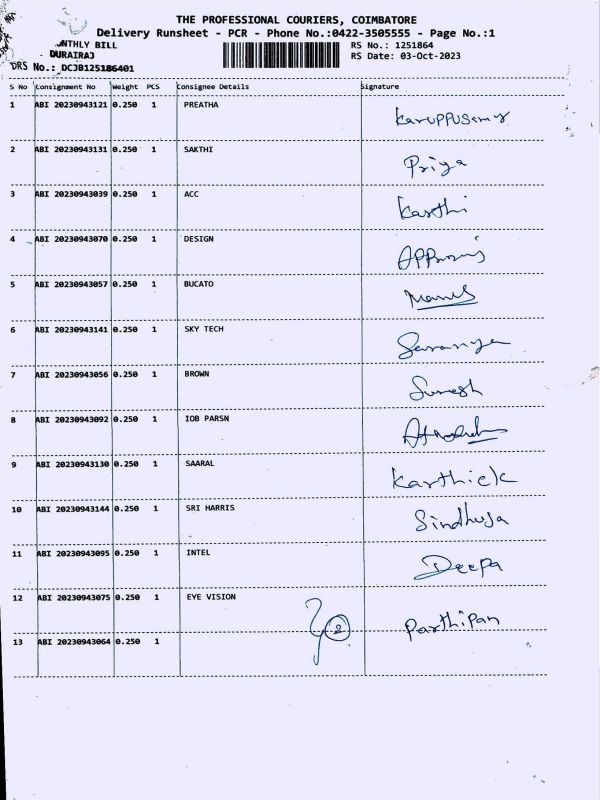 THE PROFESSIONAL COURIERS, COIMBATORE
Delivery Runsheet - PCR - Phone No.:0422-3505555 - Page No.:1
NTHLY BILL RS No.: 1251864
DURAIRAJ RS Date: 03-Oct-2023
DRS No.: DCJB125186401
S No Consignment No Weight PCS Consignee Details Signature
1 ABI 20230943121 0.250 1 PREATHA Karuppusamy
2 ABI 20230943131 0.250 1 SAKTHI Priya
3 ABI 20230943039 0.250 1 ACC Karthi
4 ABI 20230943070 0.250 1 DESIGN
5 ABI 20230943057 0.250 1 BUCATO
6 ABI 20230943141 0.250 1 SKY TECH Saranya
7 ABI 20230943056 0.250 1 BROWN Suresh
8 ABI 20230943092 0.250 1 IOB PARSN
9 ABI 20230943130 0.250 1 SAARAL Karthick
10 ABI 20230943144 0.250 1 SRI HARRIS Sindhuja
11 ABI 20230943095 0.250 1 INTEL Deepa
12 ABI 20230943075 0.250 1 EYE VISION Parthipan
2
13 ABI 20230943064 0.250 1